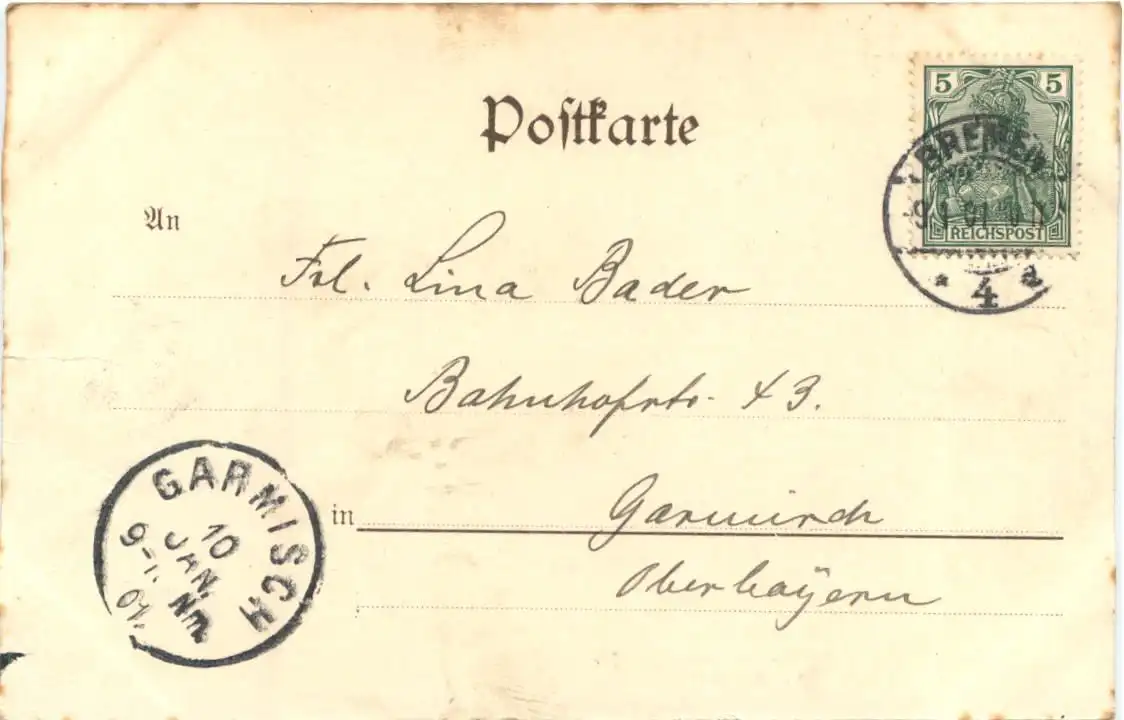 Postkarte
5 5
REICHSPOST
BREMEN
9.1.01
* 4 a
An
Frl. Lina Bader
Bahnhofstr. 43.
in Garmisch
Oberbayern
GARMISCH
10
JAN.
9-1. NM
01.